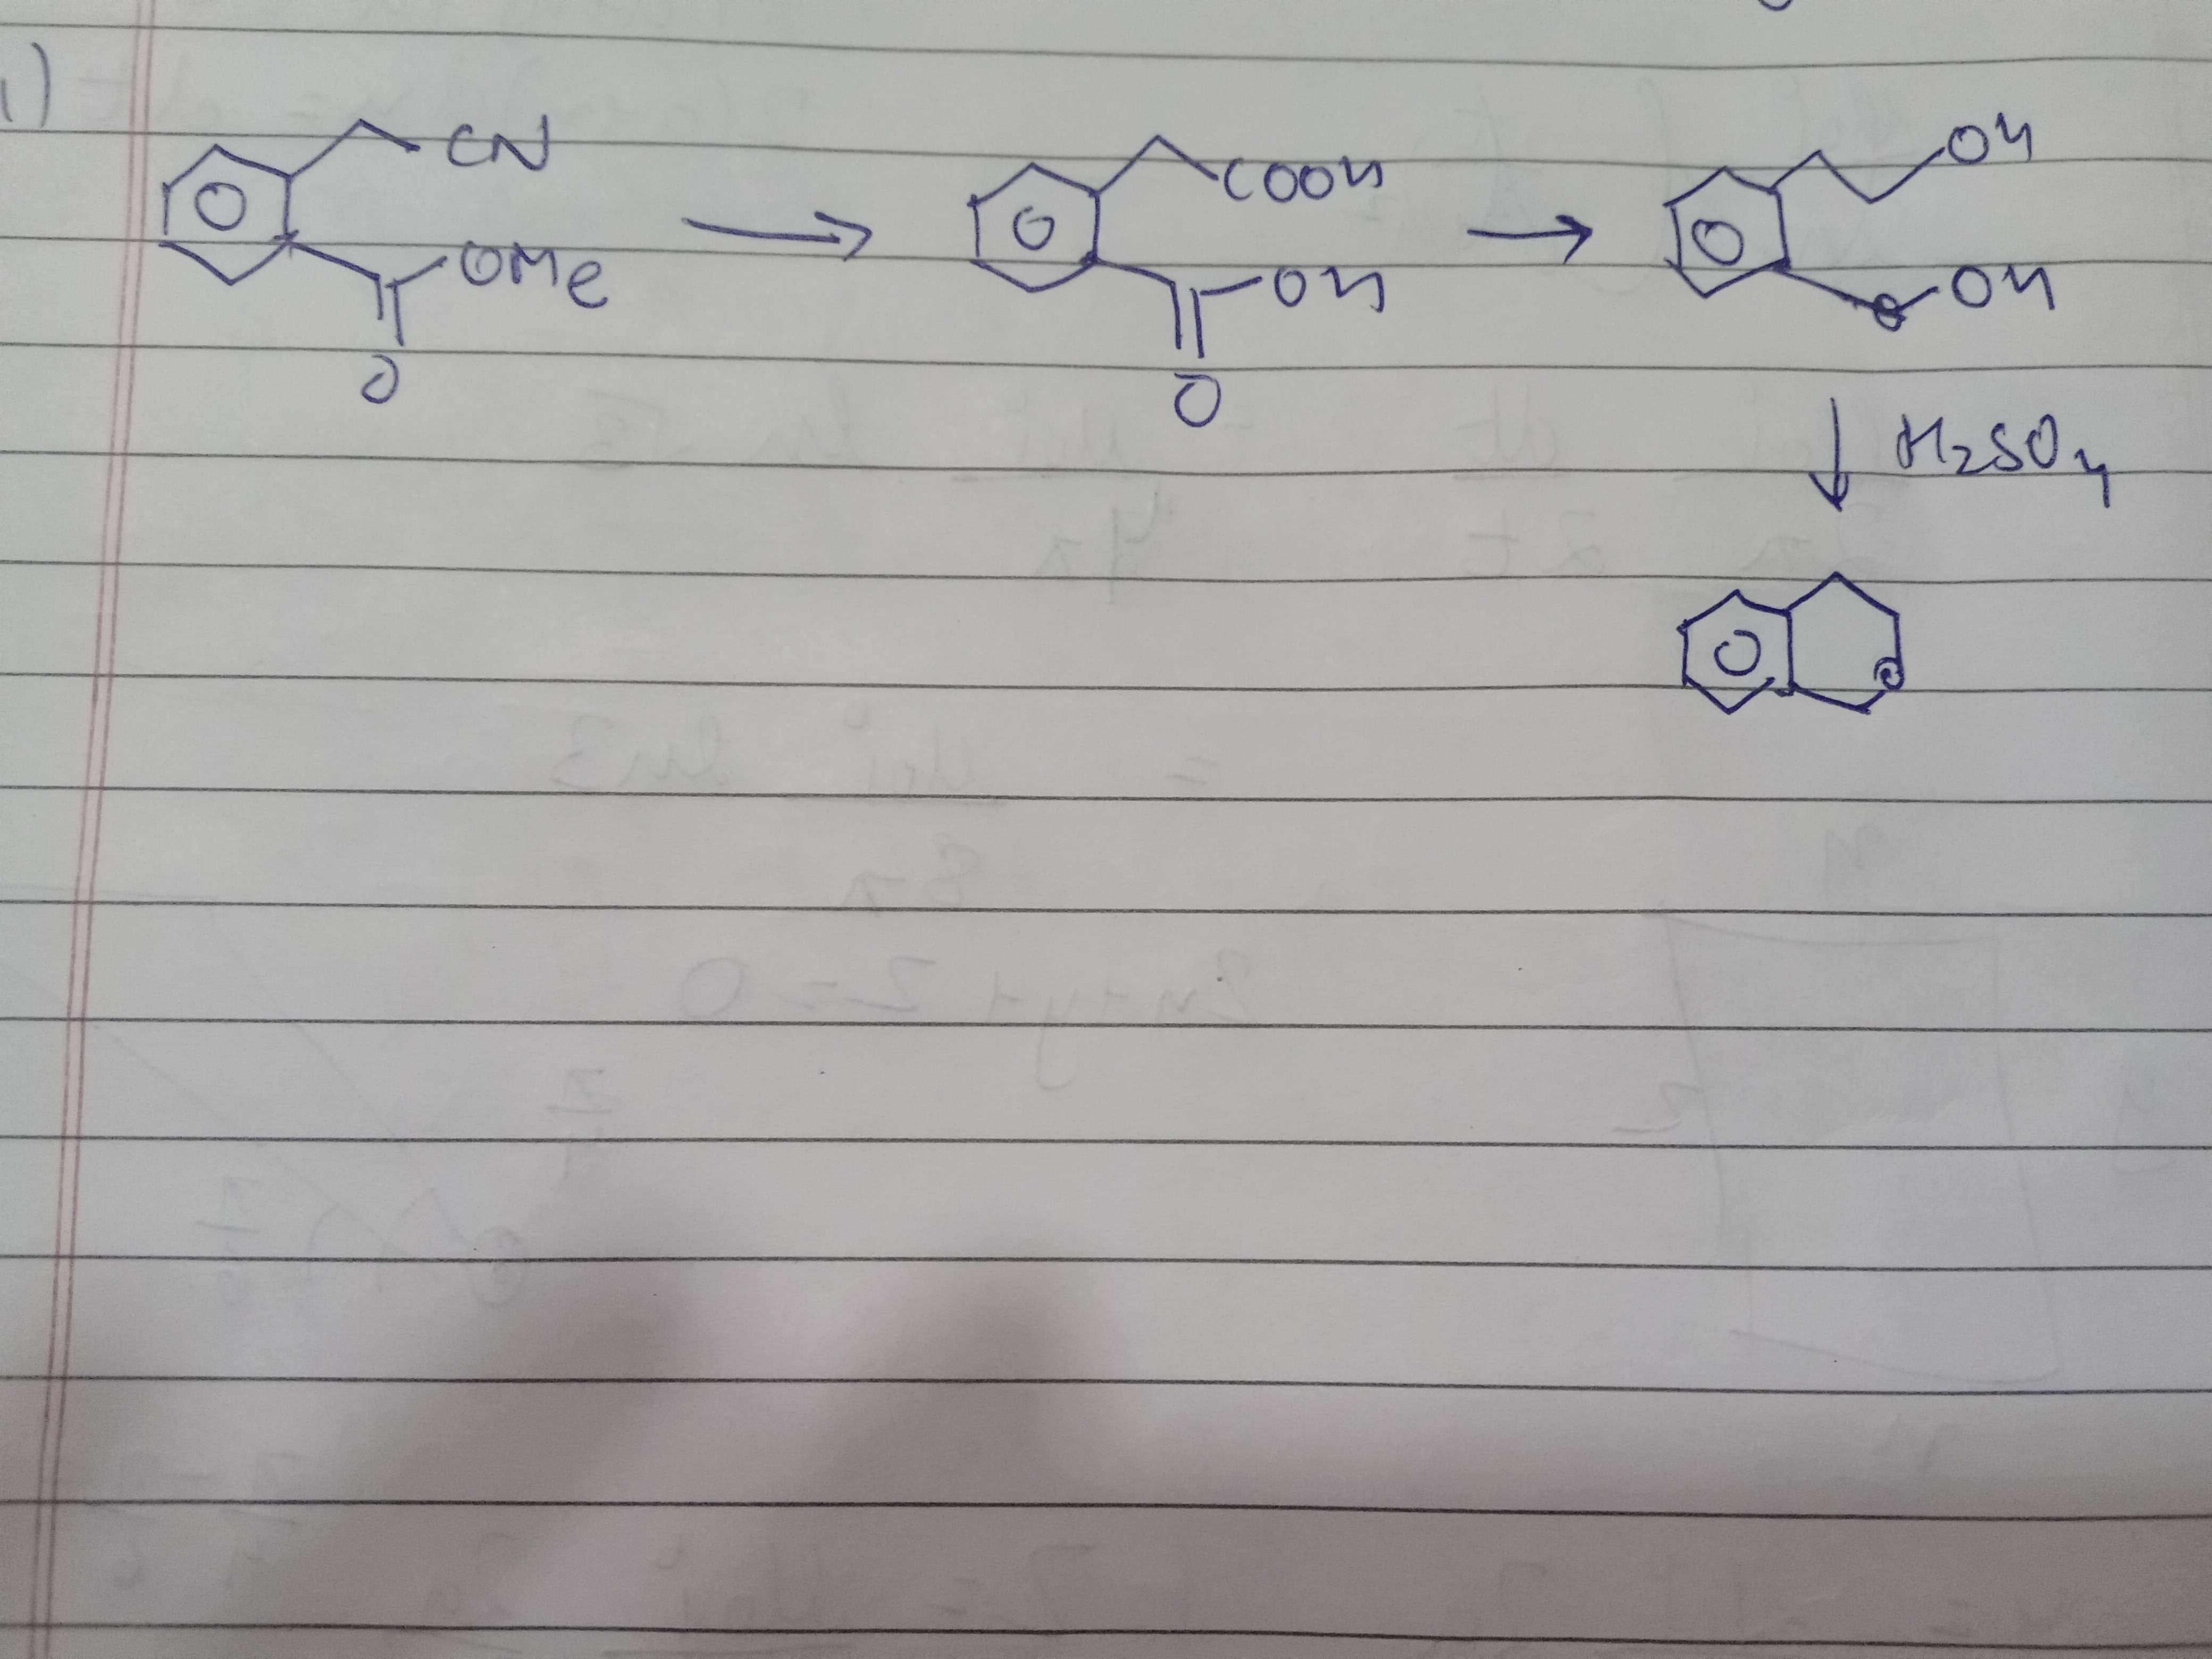 1)
CN
OMe
O
COOH
OH
O
OH
OH
H₂SO₄
O